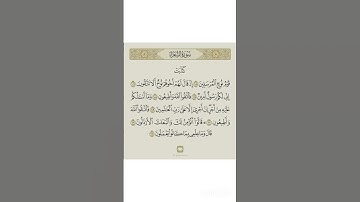 سورة الشعراء
كَذَّبَتْ
قَوْمُ نُوحٍ الْمُرْسَلِينَ ۝ إِذْ قَالَ لَهُمْ أَخُوهُمْ نُوحٌ أَلَا تَتَّقُونَ ۝
إِنِّي لَكُمْ رَسُولٌ أَمِينٌ ۝ فَاتَّقُوا اللَّهَ وَأَطِيعُونِ ۝ وَمَا أَسْأَلُكُمْ
عَلَيْهِ مِنْ أَجْرٍ إِنْ أَجْرِيَ إِلَّا عَلَىٰ رَبِّ الْعَالَمِينَ ۝ فَاتَّقُوا اللَّهَ
وَأَطِيعُونِ ۝ قَالُوا أَنُؤْمِنُ لَكَ وَاتَّبَعَكَ الْأَرْذَلُونَ ۝
قَالَ وَمَا عِلْمِي بِمَا كَانُوا يَعْمَلُونَ ۝